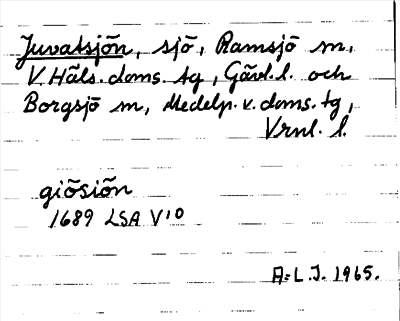 Juvatsjön, sjö, Ramsjö sn,
V. Häls. doms. tg, Gävl. l. och
Borgsjö sn, Medelp. v. doms. tg,
Vrnl. l.
giösiön
1689 LSA V¹⁰
A-L. J. 1965.